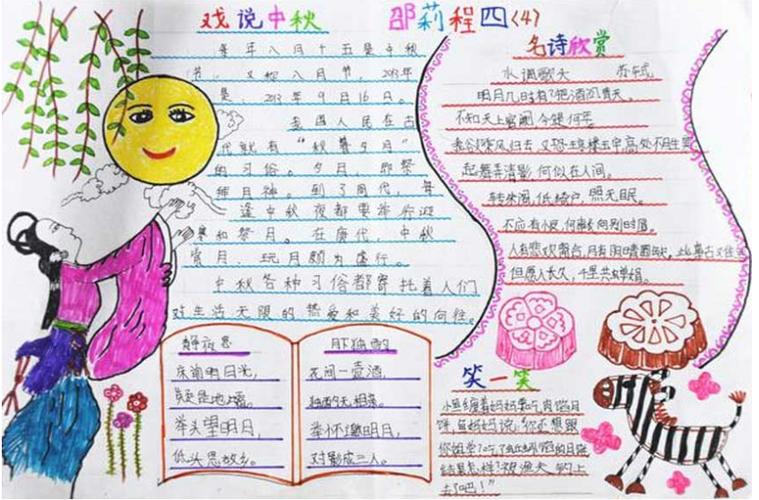 戏说中秋 邵莉程四(4)
每年八月十五是中秋
节,又称八月节,2013年
是,2013年9月16日。
我国人民在古
代就有"秋暮夕月"
的习俗。夕月,即祭
拜月神。到了周代,每
逢中秋夜都要举行迎
寒和祭月。在唐代,中秋
赏月、玩月颇为盛行。
中秋各种习俗都寄托着人们
对生活无限的热爱和美好的向往。
名诗欣赏
水调歌头 苏轼
明月几时有?把酒问青天。
不知天上宫阙,今夕是何年。
我欲乘风归去,又恐琼楼玉宇,高处不胜寒
起舞弄清影,何似在人间。
转朱阁,低绮户,照无眠。
不应有恨,何事长向别时圆。
人有悲欢离合,月有阴晴圆缺,此事古难全
但愿人长久,千里共婵娟。
静夜思
床前明月光,
疑是地上霜。
举头望明月,
低头思故乡。
月下独酌
花间一壶酒,
独酌无相亲。
举杯邀明月,
对影成三人。
笑一笑
小鱼缠着妈妈要吃肉馅月
饼,鱼妈妈说:"你还想跟
你姐学?吃了
结果怎样?被渔夫钓上
去了吧!"